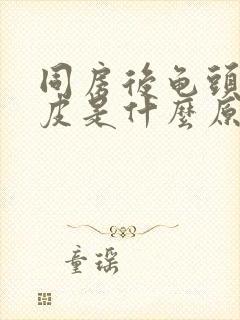 同房後龟頭
皮是什麼原
童瑶